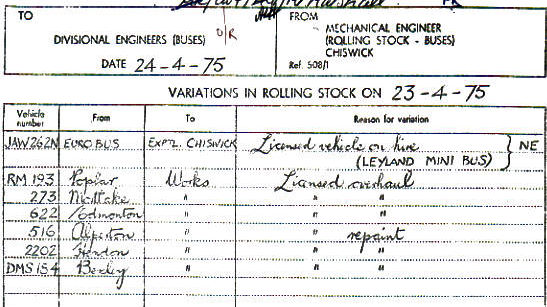 TO
DIVISIONAL ENGINEERS (BUSES) O/R
DATE 24-4-75
FROM
MECHANICAL ENGINEER
(ROLLING STOCK - BUSES)
CHISWICK
Ref. 508/1
VARIATIONS IN ROLLING STOCK ON 23-4-75
Vehicle number From To Reason for variation
JAW262N EUROBUS EXPTL CHISWICK Licensed vehicle on hire
(LEYLAND MINI BUS) NE
RM 193 Poplar Works Licensed overhaul
273 Mortlake " " "
622 Edmonton " " "
516 Alperton " " repaint
2202 Hendon " " "
DMS 154 Bexley " " "